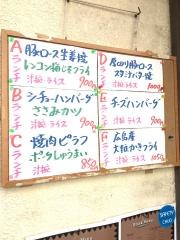 A
ランチ
豚ロース生姜焼
レンコン梅じそフライ
汁椀・ライス 900円
B
ランチ
シーチューハンバーグ
ささみカツ
汁椀・ライス 900円
C
ランチ
焼肉ピラフ
ポークしゅうまい
汁椀 850円
D
ランチ
厚切り豚ロース
スタミナバター焼
汁椀・ライス 1000円
E
ランチ
チーズハンバーグ
汁椀・ライス 900円
F
ランチ
広島産
大粒かきフライ
汁椀・ライス 1050円